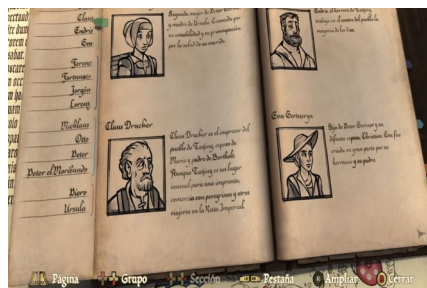 Claus
Endris
Eva
Ferenc
Fortuner
Jorgin
Lorenz
Mickhans
Otto
Peter
Peter el Moribundo
Piero
Ursula
Segunda mujer de Peter
y madre de Ursula. Conocida por
su amabilidad y su preocupación
por la salud de su marido.
Claus Drucker
Claus Drucker es el impresor del
pueblo de Tassing, esposo de
Marie y padre de Berthold.
Aunque Tassing es un lugar
inusual para una imprenta,
comercia con peregrinos y otros
viajeros en la Ruta Imperial.
Endris, el herrero de Tassing,
trabaja en el centro del pueblo la
mayoría de los días.
Eva Gertneryn
Hija de Peter Gertner y su
difunta esposa, Christina. Eva fue
criada en gran parte por su
hermano y su padre.
Página
Grupo
Sección
Pestaña
Ampliar
Cerrar